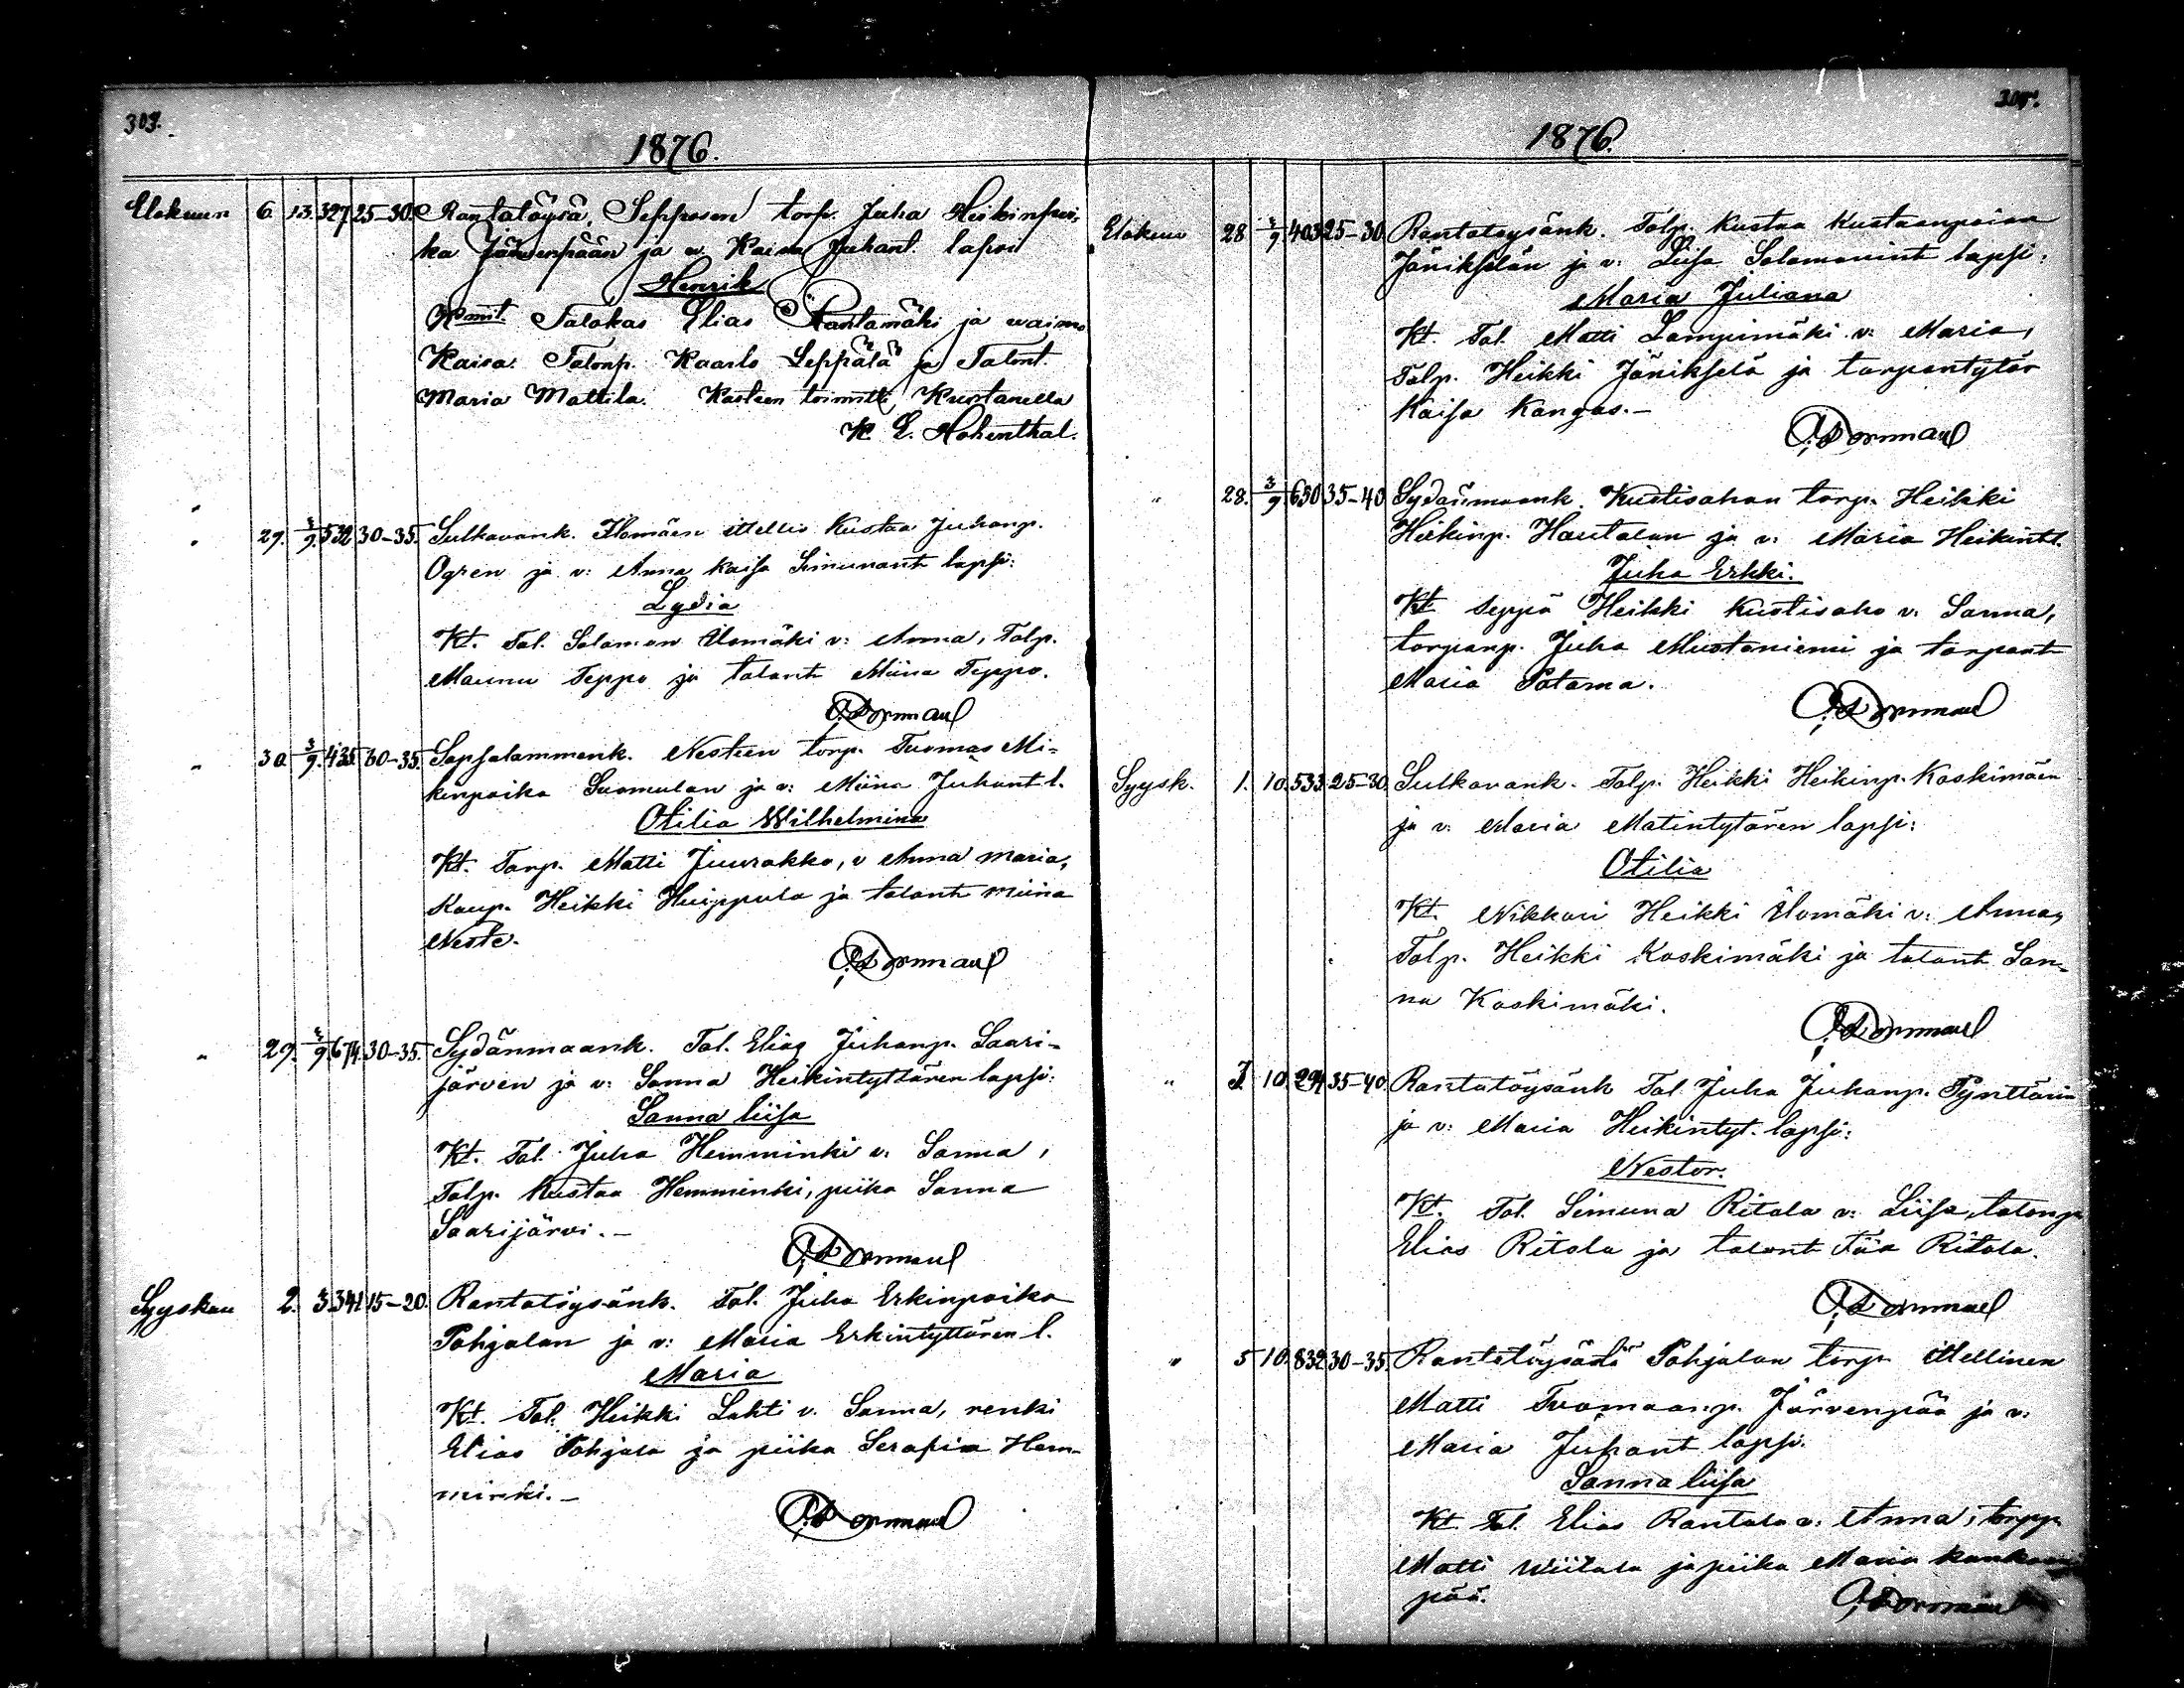 303.
1876.
Elokuun 6. 13. 327 25-30. Rantatöysä, Sepposen torp. Juha Heikinpoi-
ka Järvenpään ja v. Kaisa Juhant. lapsi
Henrik
Kumit. Talokas Elias Rantamäki ja waimo
Kaisa. Talonp. Kaarlo Seppälä ja Talont.
Maria Mattila. Kasteen toimitti Kuortaneella
K. E. Hohenthal.
"
" 29. 3/9. 532 30-35. Sulkavank. Ilomäen ittellis Kustaa Juhanp.
Ogren ja v: Anna Kaisa Simunant lapsi:
Lydia
Kt. Tal. Salomon Ilomäki v: Anna, Talp.
Maunu Teppo ja talont Miina Teppo.
" 30. 3/9. 435. 30-35. Sapsalammenk. Nesteen torp. Tuomas Mi-
kinpoika Suomulan ja v: Miina Juhant l.
Otilia Wilhelmina
Kt. Torp. Matti Juurakko, v Anna Maria,
Kaup. Heikki Huippula ja talont Miina
Neste.
" 29. 3/9 674. 30-35. Sydänmaank. Tal. Elias Juhanp. Saari-
järven ja v: Sanna Heikintyttären lapsi:
Sanna Liisa
Kt. Tal. Juha Hemminki v: Sanna,
Talp. Kustaa Hemminki, piika Sanna
Saarijärvi.-
Syyskuu 2. 3. 341 15-20. Rantatöysänk. Tal. Juha Erkinpoika
Pohjalan ja v: Maria Erkintyttären l.
Maria
Kt. Tal. Heikki Lahti v. Sanna, renki
Elias Pohjala ja piika Serafia Hem-
minki.-
1876.
Elokuu 28 3/9 403 25-30 Rantatöysänk. Talp. Kustaa Kustaanpoian
Jänikselän ja v: Liisa Salomonint lapsi:
Maria Juliana
Kt. Tal. Matti Lampimäki v: Maria,
Talp. Heikki Jänikselä ja torpantytär
Kaisa Kangas.-
" 28. 3/9 650 35-40 Sydänmaank. Kustisahan torp. Heikki
Heikinp. Hautalan ja v: Maria Heikintt.
Juha Erkki.
Kt Seppä Heikki Kustisaho v: Sanna,
torpanp. Juha Mustaniemi ja torpant
Maria Patama.
Syysk. 1. 10. 533. 25-30 Sulkavank. Talp. Heikki Heikinp. Koskimäen
ja v: Maria Matintytären lapsi:
Otilia
Kt. Nikkari Heikki Ilomäki v: Anna,
Talp. Heikki Koskimäki ja talont San-
na Koskimäki.
" 3. 10 294 35-40 Rantatöysänk Tal. Juha Juhanp. Pynttärin
ja v: Maria Heikintyt. lapsi:
Nestor.
Kt. Tal. Simuna Ritola v: Liisa, talonp
Elias Ritola ja talont Fiia Ritola.
" 5 10. 832 30-35 Rantatöysästä Pohjalan torp ittellinen
Matti Tuomaanp. Järvenpää ja v:
Maria Juhant lapsi.
Sanna Liisa
Kt. Tal. Elias Rantala v: Anna, torpp.
Matti Wiitala ja piika Maria
pää.